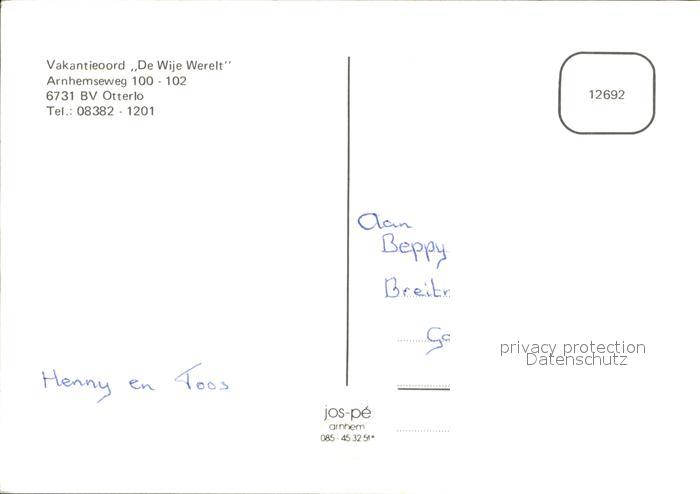 Vakantieoord „De Wije Werelt”
Arnhemseweg 100 - 102
6731 BV Otterlo
Tel.: 08382 - 1201
12692
Aan
Beppy
privacy protection
Datenschutz
Henny en Toos
jos-pé
arnhem
085 - 45 32 51*